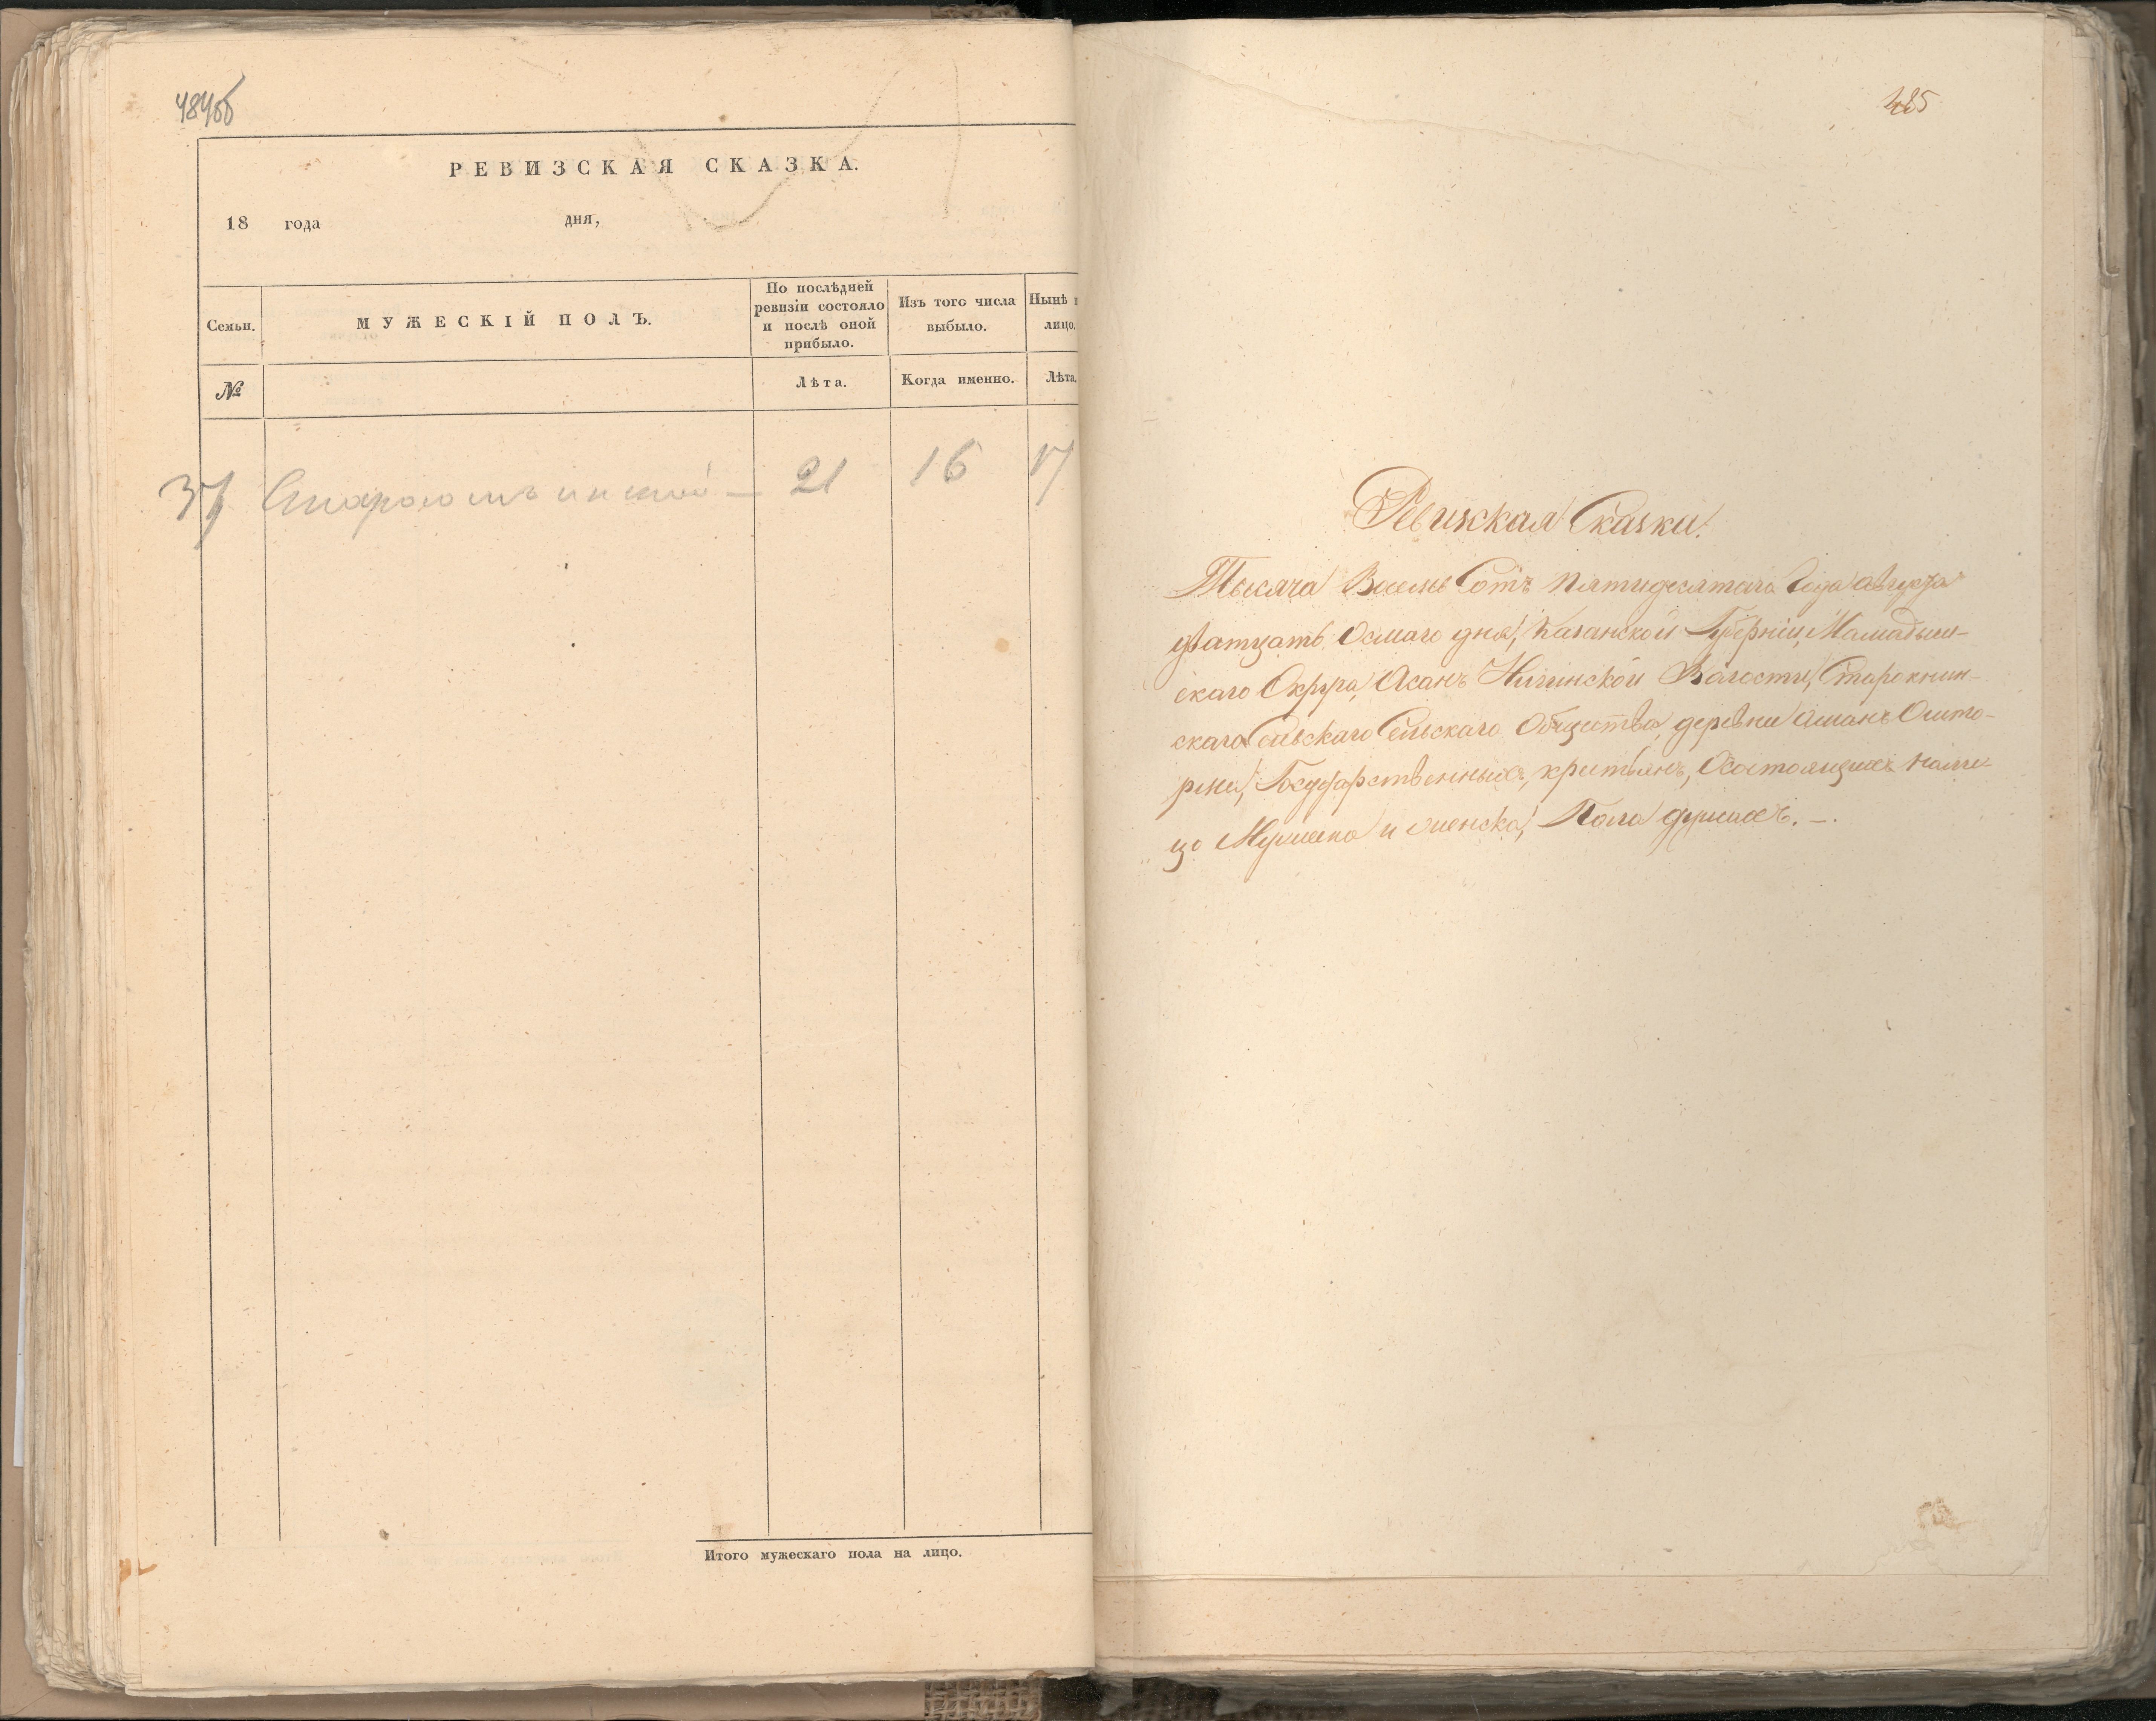 484об
РЕВИЗСКАЯ СКАЗКА.
18 года дня,
Семьи.
МУЖЕСКІЙ ПОЛЪ.
По послѣдней
ревизіи состояло
и послѣ оной
прибыло.
Изъ того числа
выбыло.
Нынѣ
лицо.
№
Лѣта.
Когда именно.
Лѣта.
37 21 16 17
Итого мужескаго пола на лицо.
485
Ревизская Сказка.
Тысяча Восемь Сотъ пятидесятаго Года августа
дватцать Осмаго дня, Казанской Губерніи, Мамадыш-
скаго Округа, Асанъ Волости, Старокнин-
скаго Сельскаго Сельскаго Общества, деревни
рмы, Государственныхъ, крестьянъ, Осостоящихъ нали-
цо Мужеска и женска, Пола душахъ. —.